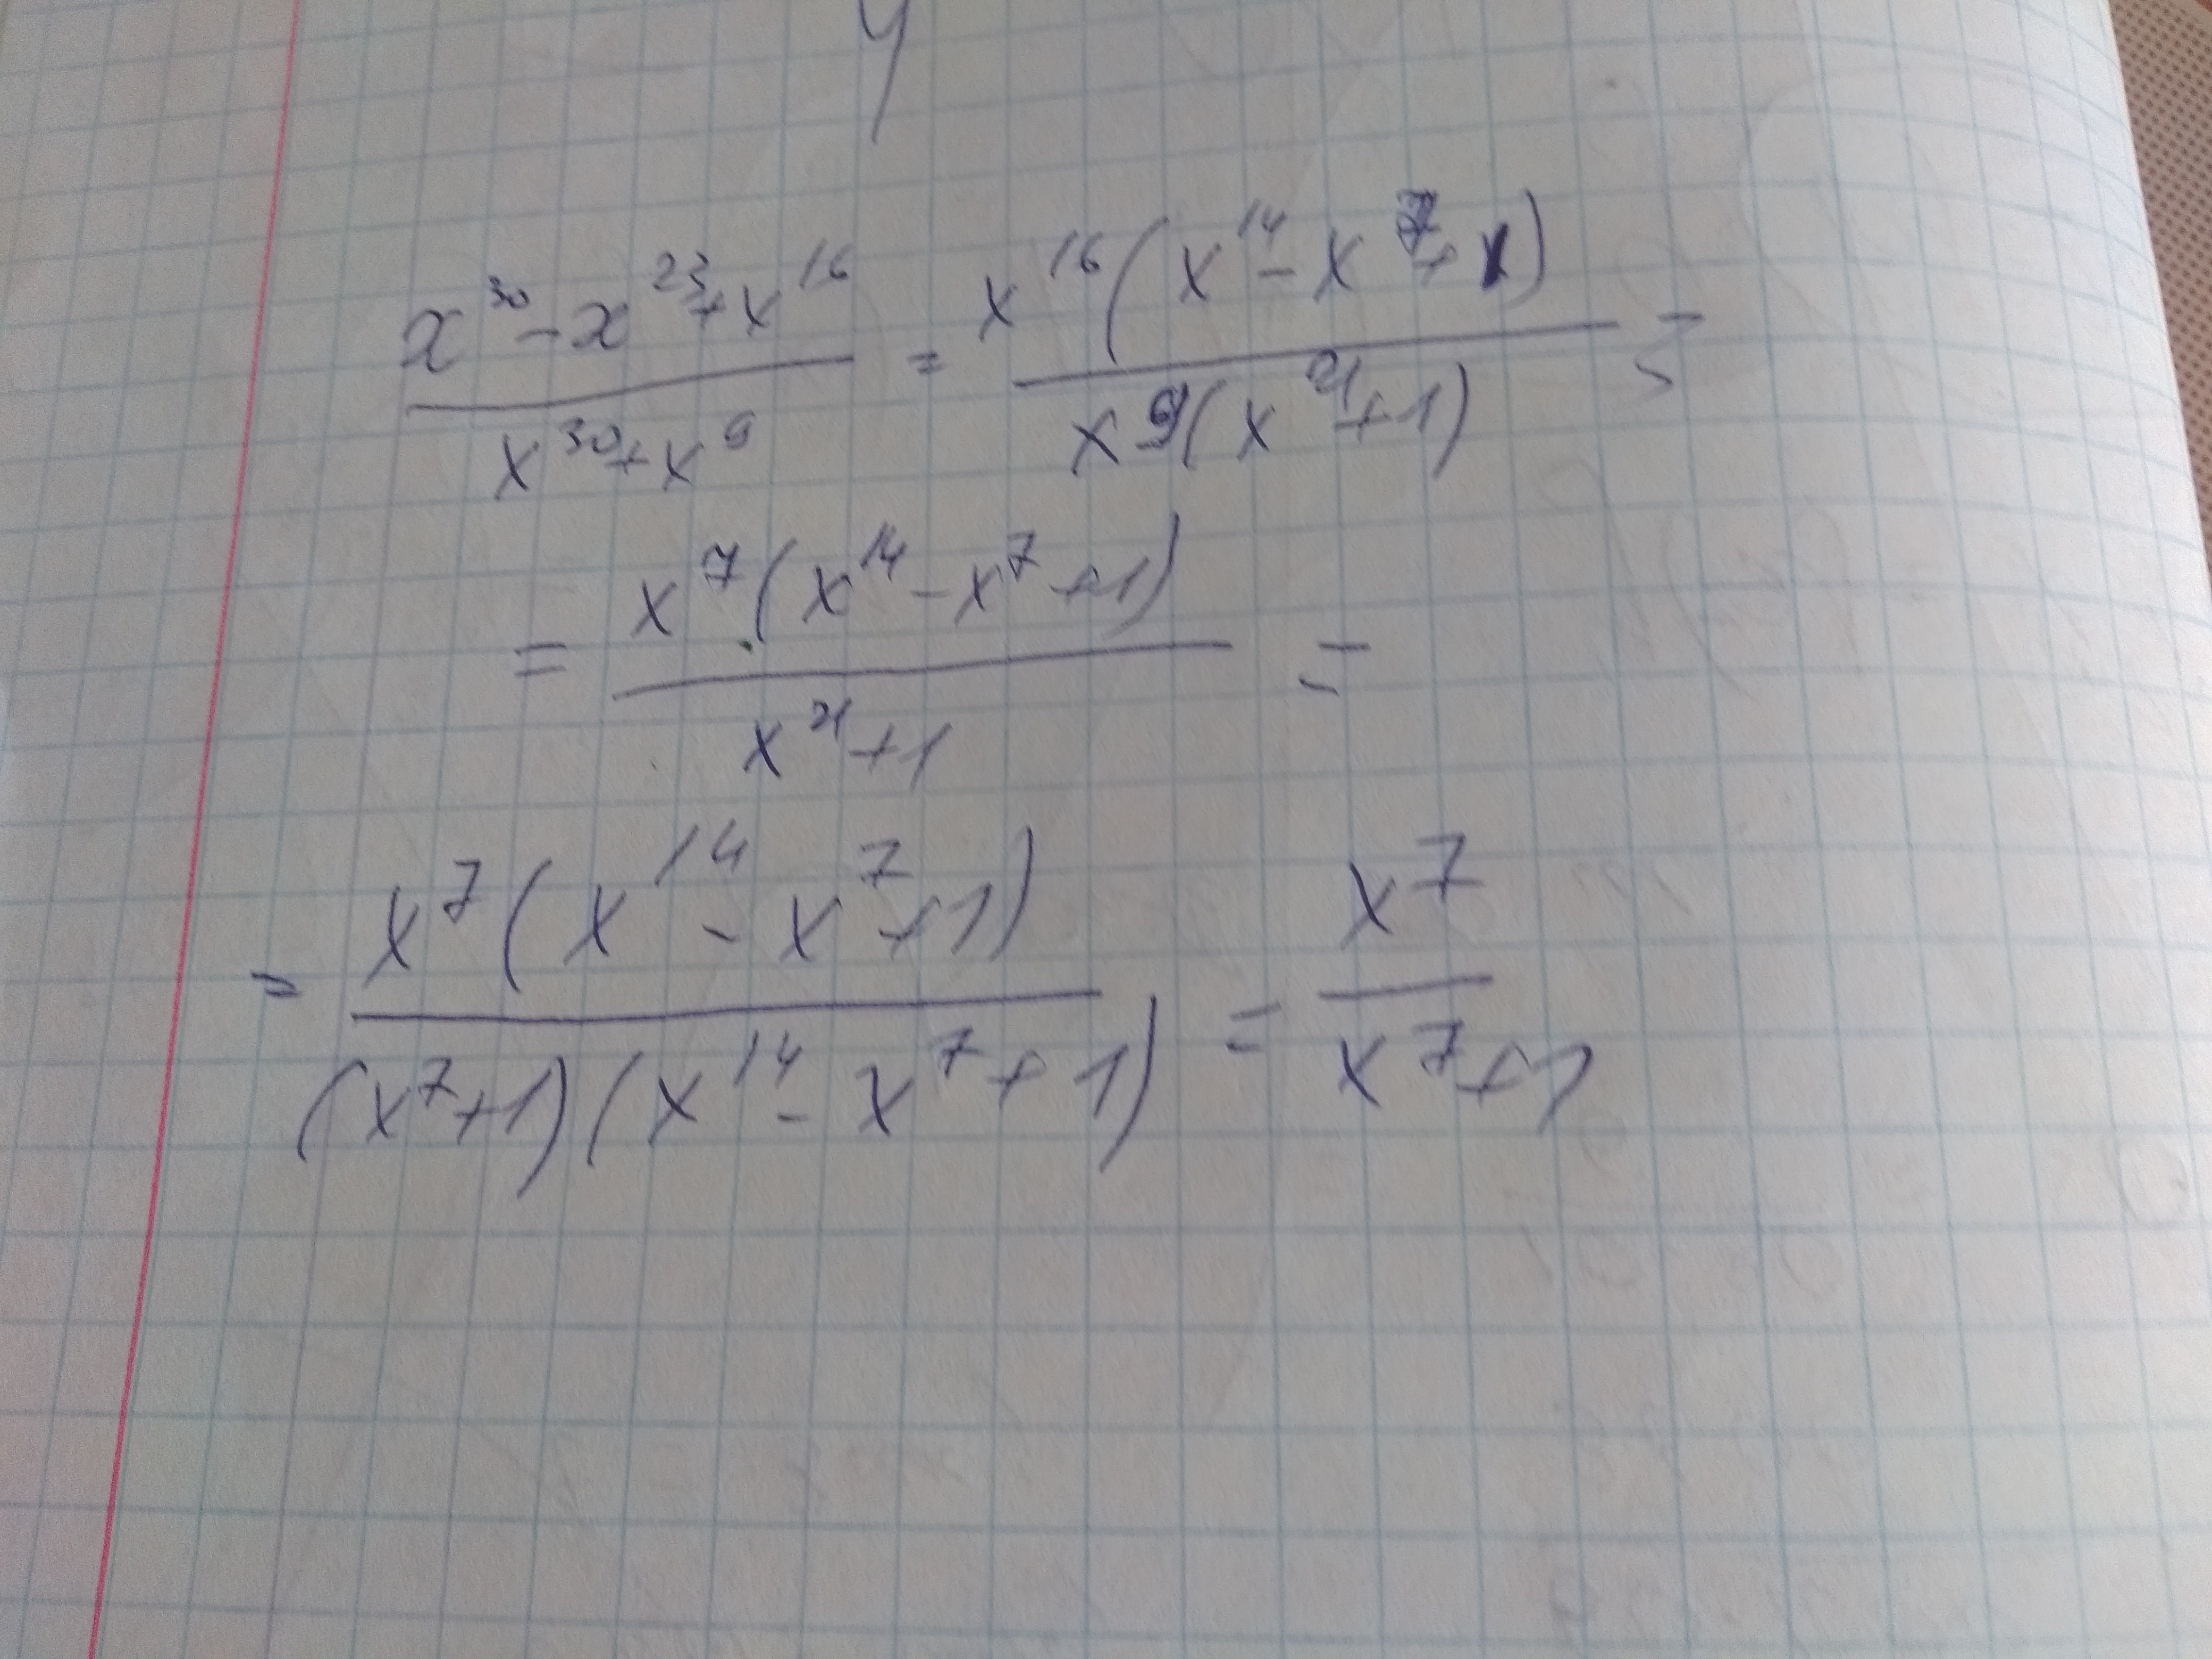 y
x³⁰ - x²³ + x¹⁶ / x³⁰ + x⁹ = x¹⁶(x¹⁴ - x⁷ + 1) / x⁹(x²¹ + 1) =
= x⁷(x¹⁴ - x⁷ + 1) / x²¹ + 1 =
= x⁷(x¹⁴ - x⁷ + 1) / (x⁷ + 1)(x¹⁴ - x⁷ + 1) = x⁷ / x⁷ + 1